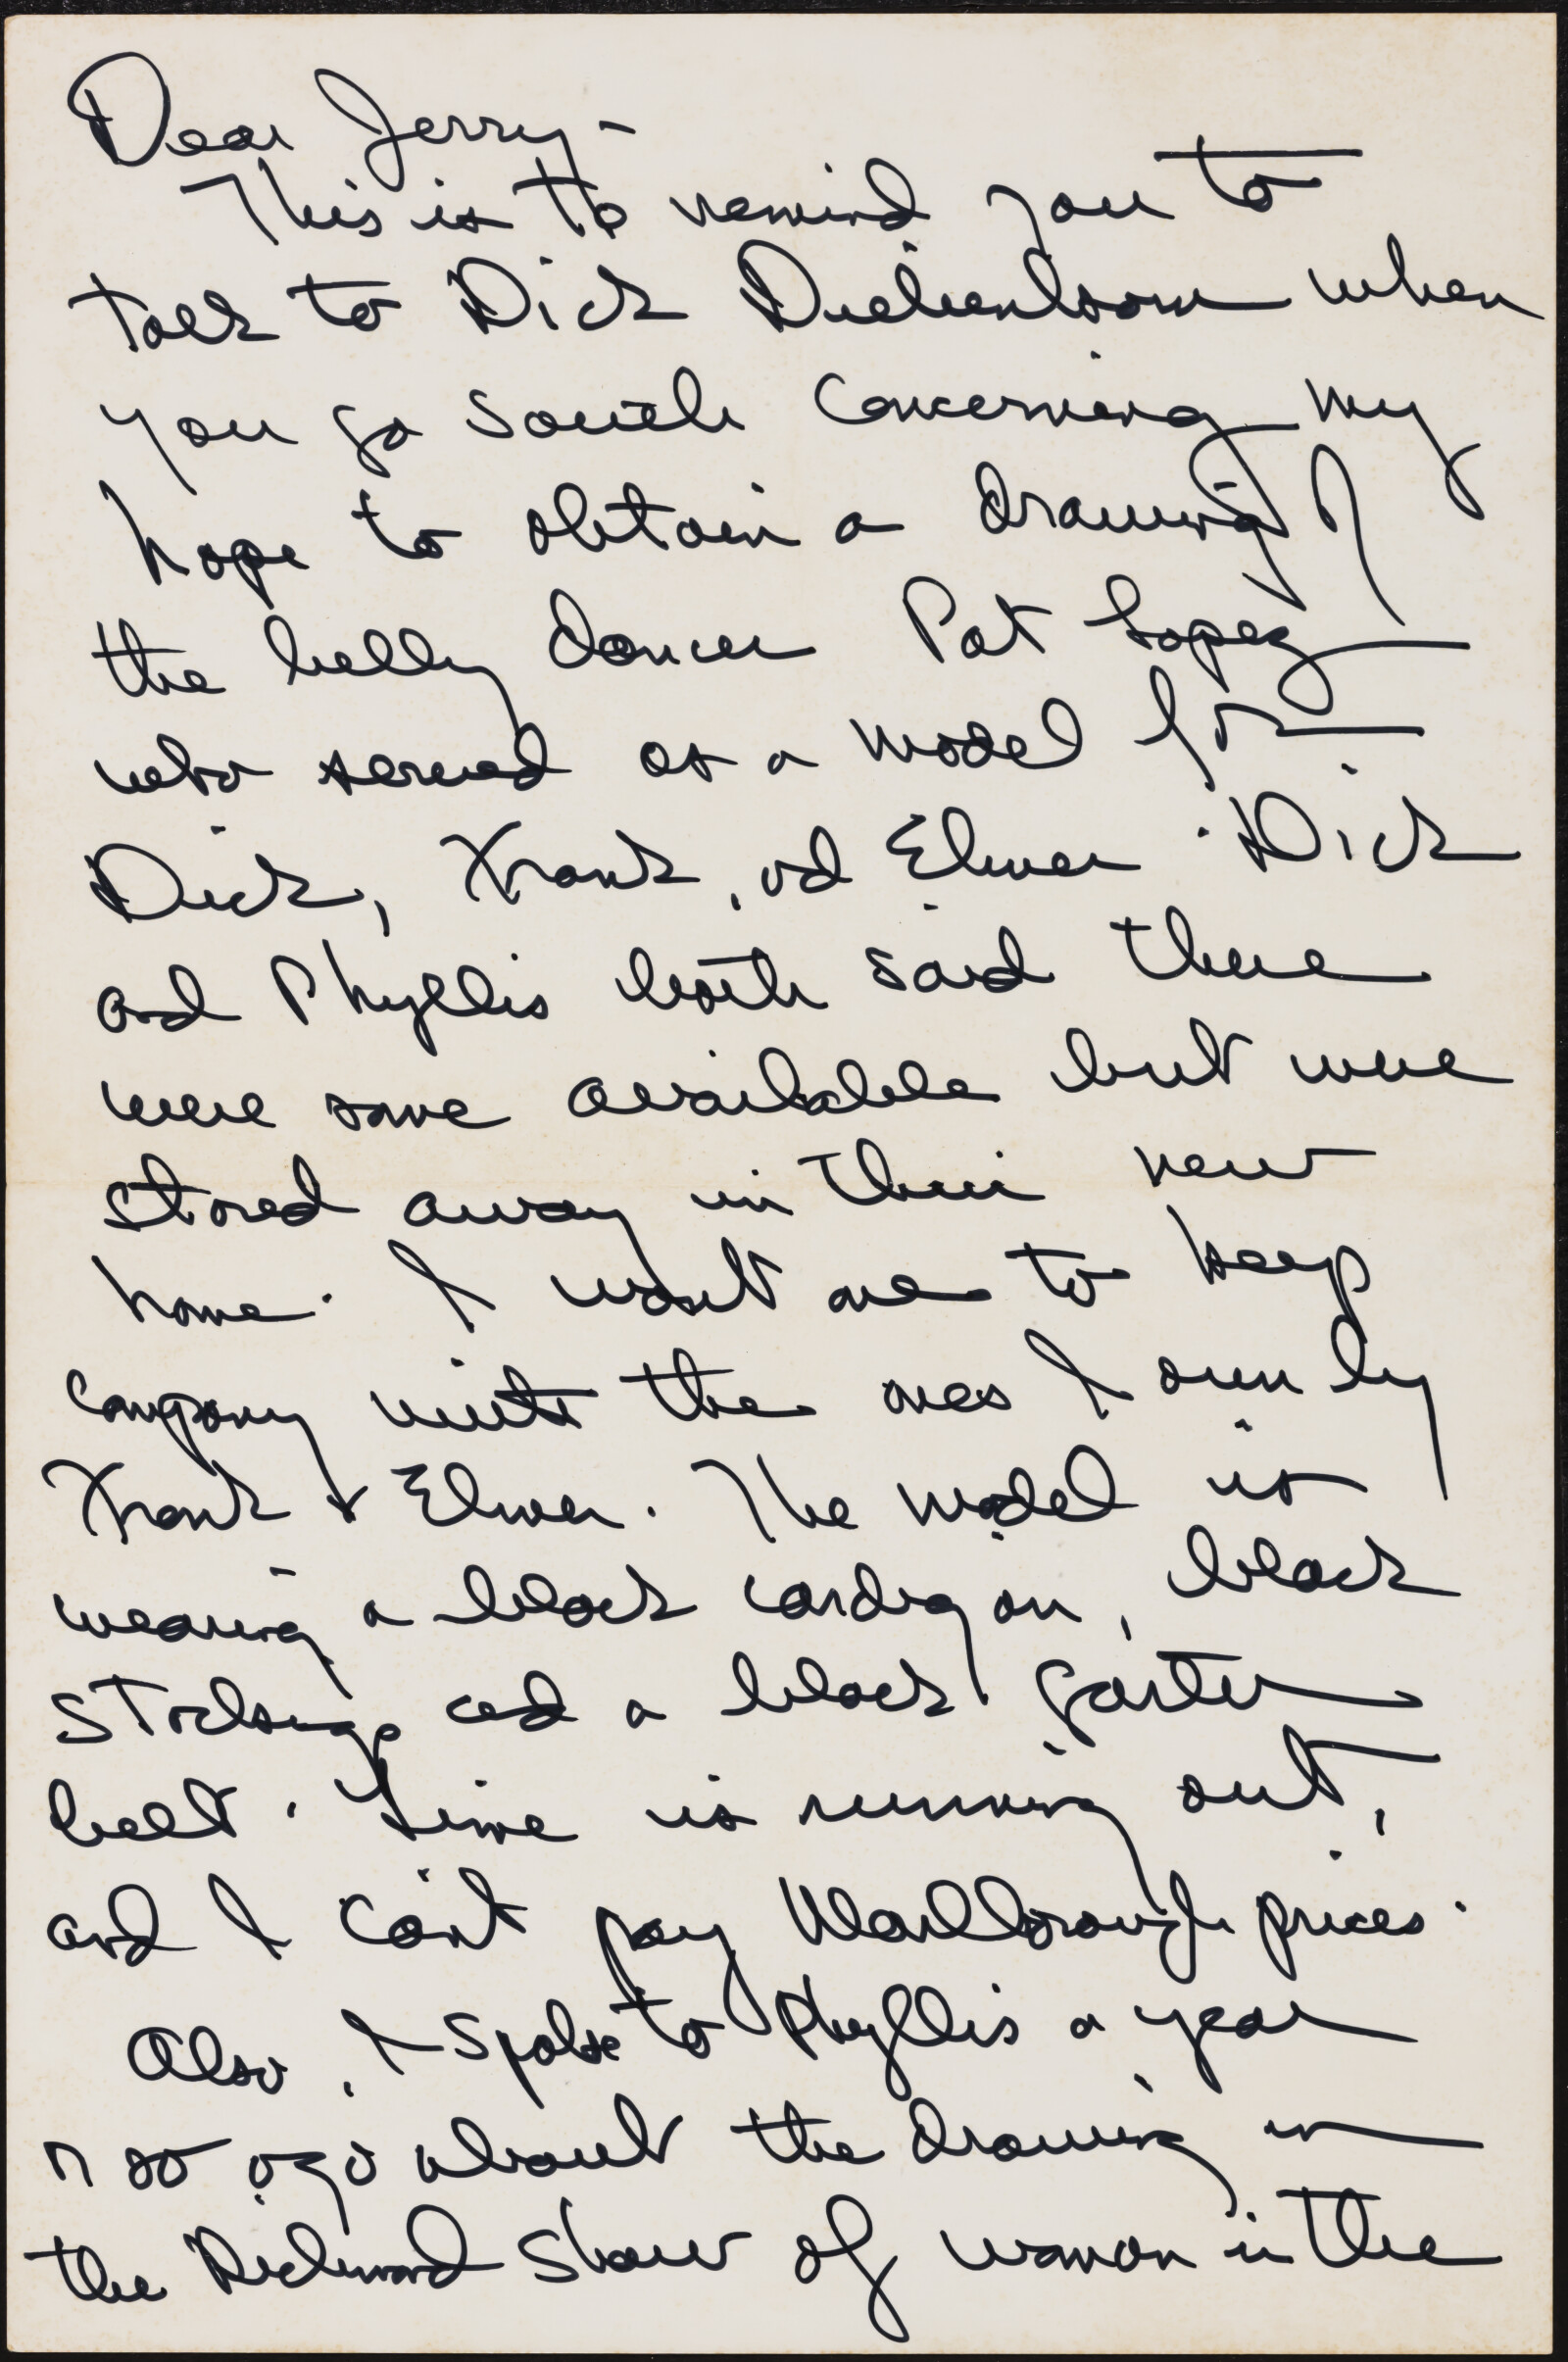 Dear Jerry-
This is to remind you to
talk to Dick Diebenkorn when
you go south concerning my
hope to obtain a drawing of
the belly dancer Pat Lopez
who served as a model for
Dick, Frank, and Elmer. Dick
and Phyllis both said there
were some available but were
stored away in their new
home. I want one to keep
company with the ones I own by
Frank & Elmer. The model is
wearing a black cardigan, black
stockings and a black garter
belt. Time is running out,
and I can't pay Marlborough prices.
Also, I spoke to Phyllis a year
or so ago about the drawing in
the Richmond show of woman in the